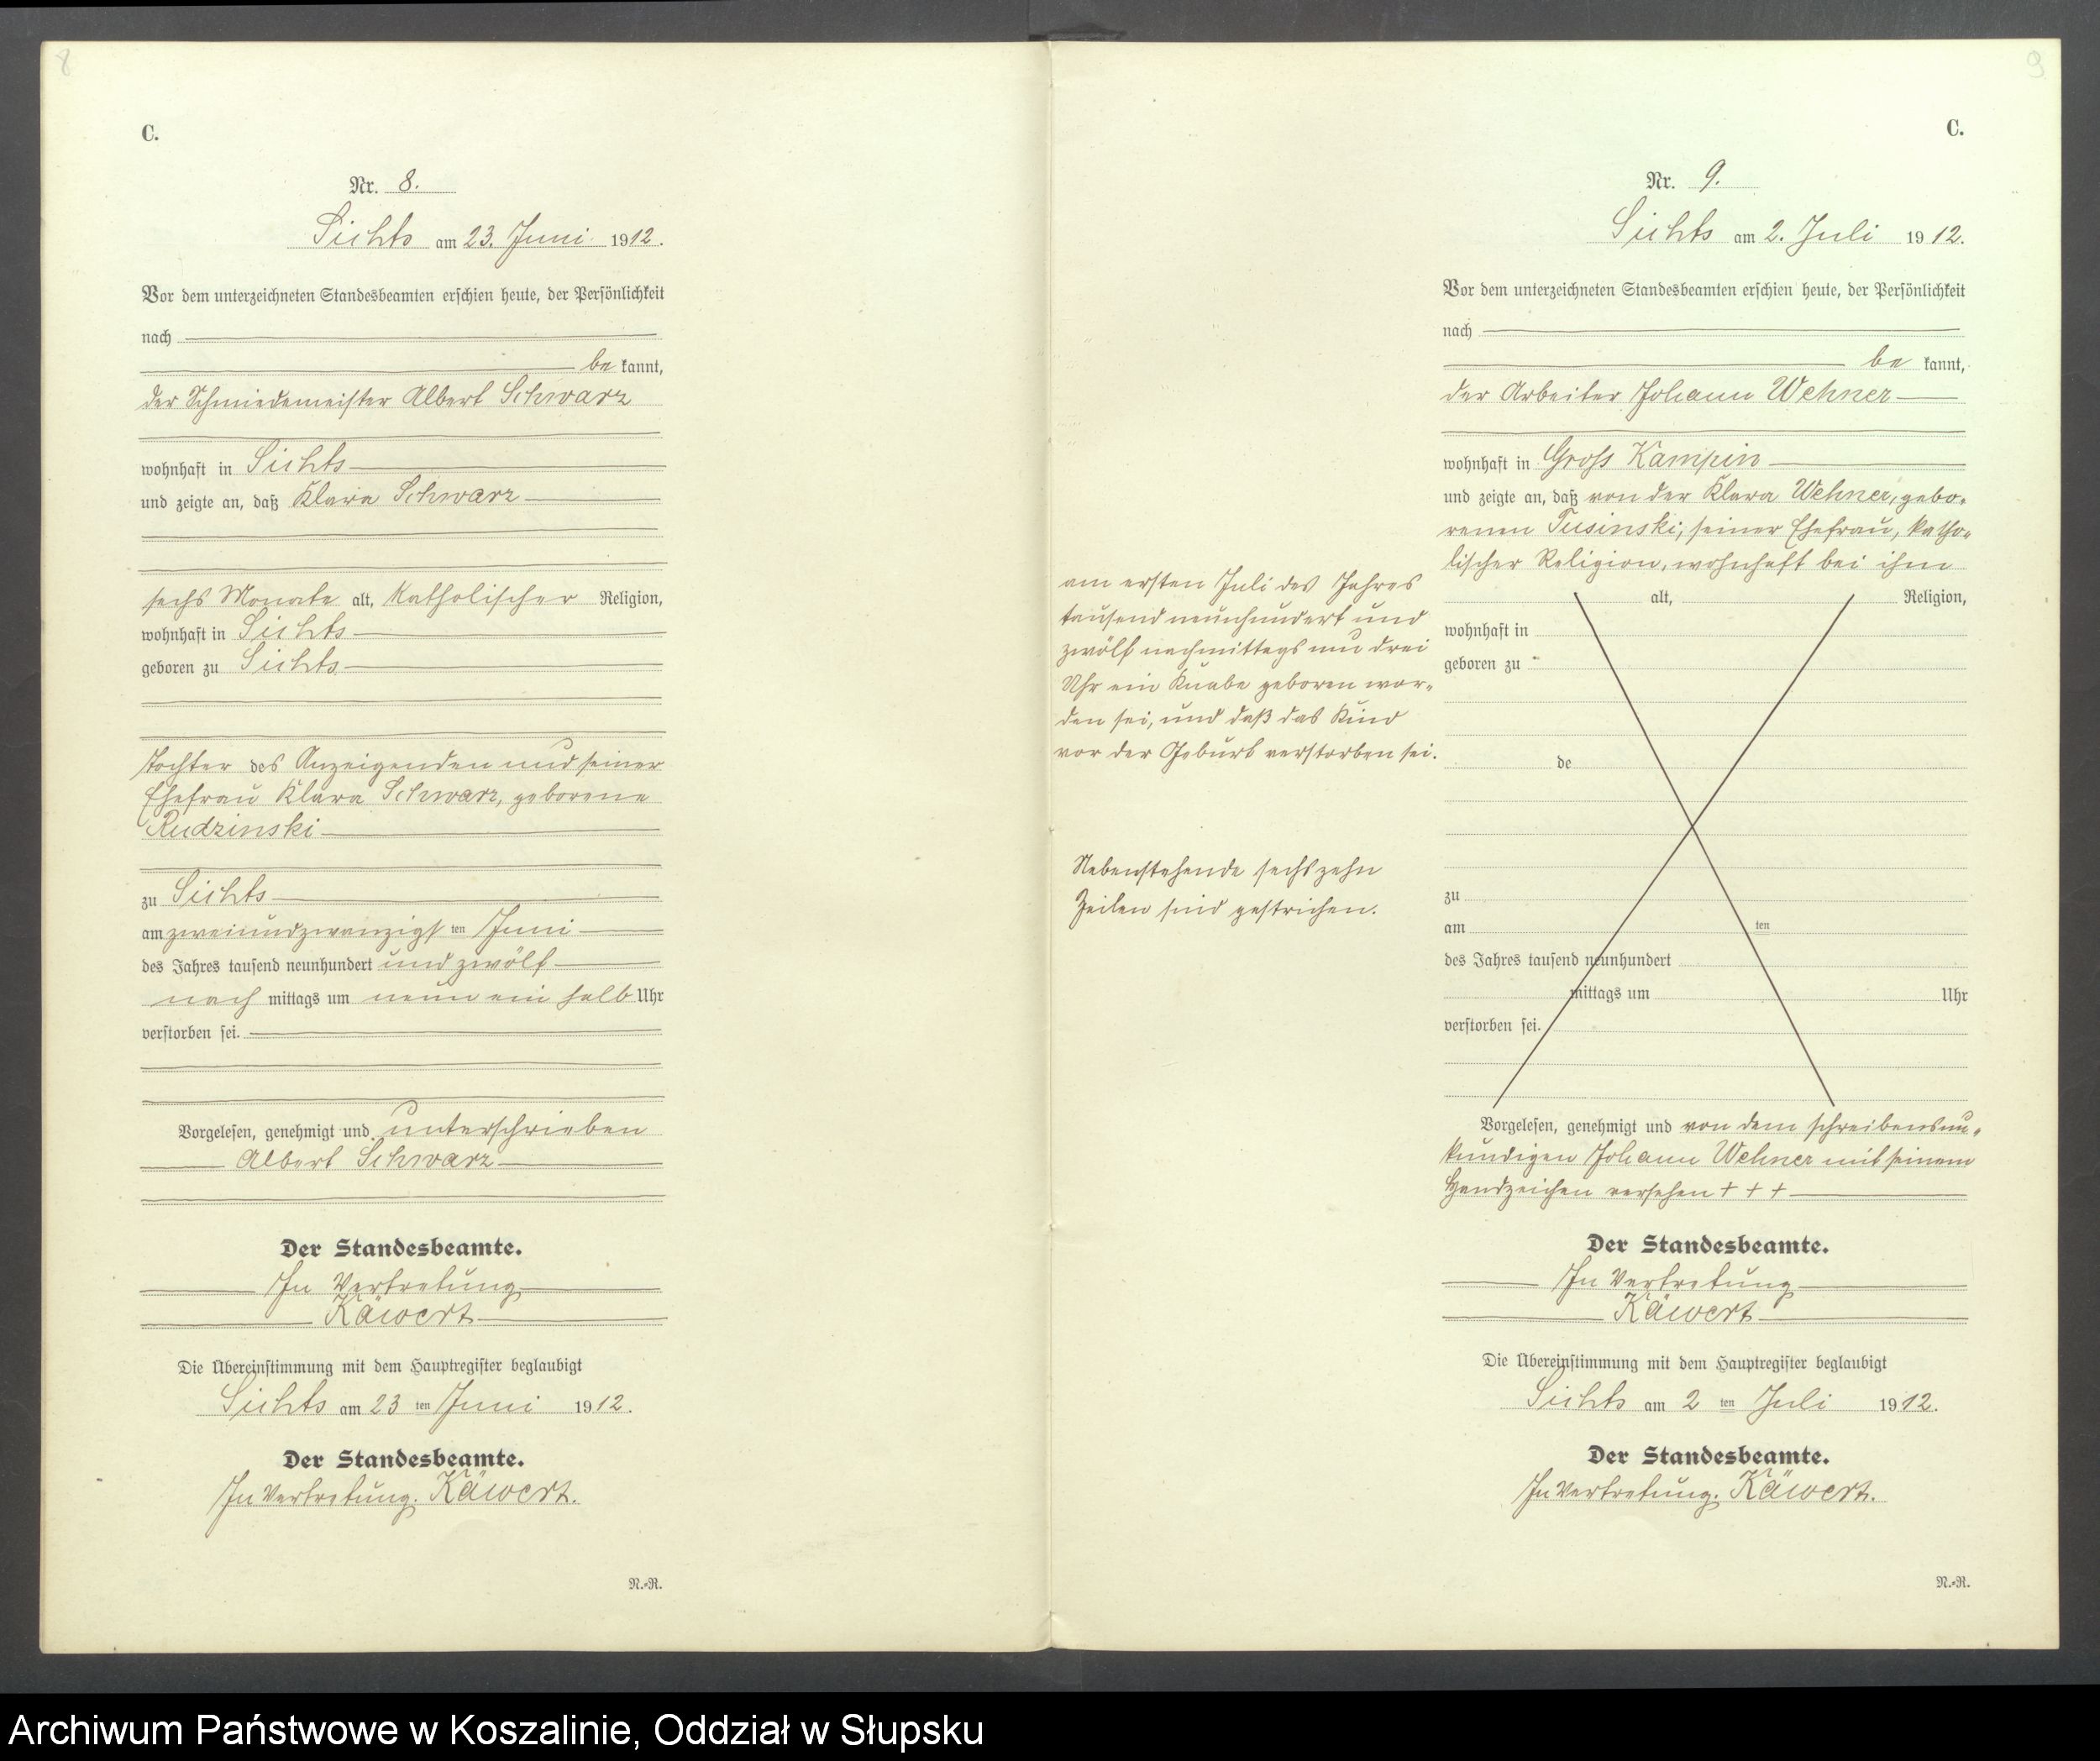 8
C.
Nr. 8.
Sichts am 23. Juni 1912.
Vor dem unterzeichneten Standesbeamten erschien heute, der Persönlichkeit
nach
be kannt,
der Schmiedemeister Albert Schwarz
wohnhaft in Sichts
und zeigte an, daß Klara Schwarz
sechs Monate alt, katholischer Religion,
wohnhaft in Sichts
geboren zu Sichts
Tochter des Anzeigenden und seiner
Ehefrau Klara Schwarz, geborene
Rudzinski
zu Sichts
am zweiundzwanzigs ten Juni
des Jahres tausend neunhundert und zwölf
nach mittags um neun ein halb Uhr
verstorben sei.
Vorgelesen, genehmigt und unterschrieben
Albert Schwarz
Der Standesbeamte.
In Vertretung
Käwert
Die Übereinstimmung mit dem Hauptregister beglaubigt
Sichts am 23 ten Juni 1912.
Der Standesbeamte.
In Vertretung. Käwert.
N.-R.
9
C.
Nr. 9.
Sichts am 2. Juli 1912.
Vor dem unterzeichneten Standesbeamten erschien heute, der Persönlichkeit
nach
be kannt,
der Arbeiter Johann Wehner
wohnhaft in Gross Kampin
und zeigte an, daß von der Klara Wehner, gebo-
renen Tusinski, seiner Ehefrau, katho-
lischer Religion, wohnhaft bei ihm
am ersten Juli des Jahres
tausend neunhundert und
zwölf nachmittags um drei
Uhr ein Knabe geboren wor-
den sei, und daß das Kind
vor der Geburt verstorben sei.
Nebenstehende sechszehn
Zeilen sind gestrichen.
alt, Religion,
wohnhaft in
geboren zu
de
zu
am ten
des Jahres tausend neunhundert
mittags um Uhr
verstorben sei.
Vorgelesen, genehmigt und von dem schreibensun-
kundigen Johann Wehner mit seinem
Handzeichen versehen + + +
Der Standesbeamte.
In Vertretung
Käwert
Die Übereinstimmung mit dem Hauptregister beglaubigt
Sichts am 2 ten Juli 1912.
Der Standesbeamte.
In Vertretung. Käwert.
N.-R.
Archiwum Państwowe w Koszalinie, Oddział w Słupsku